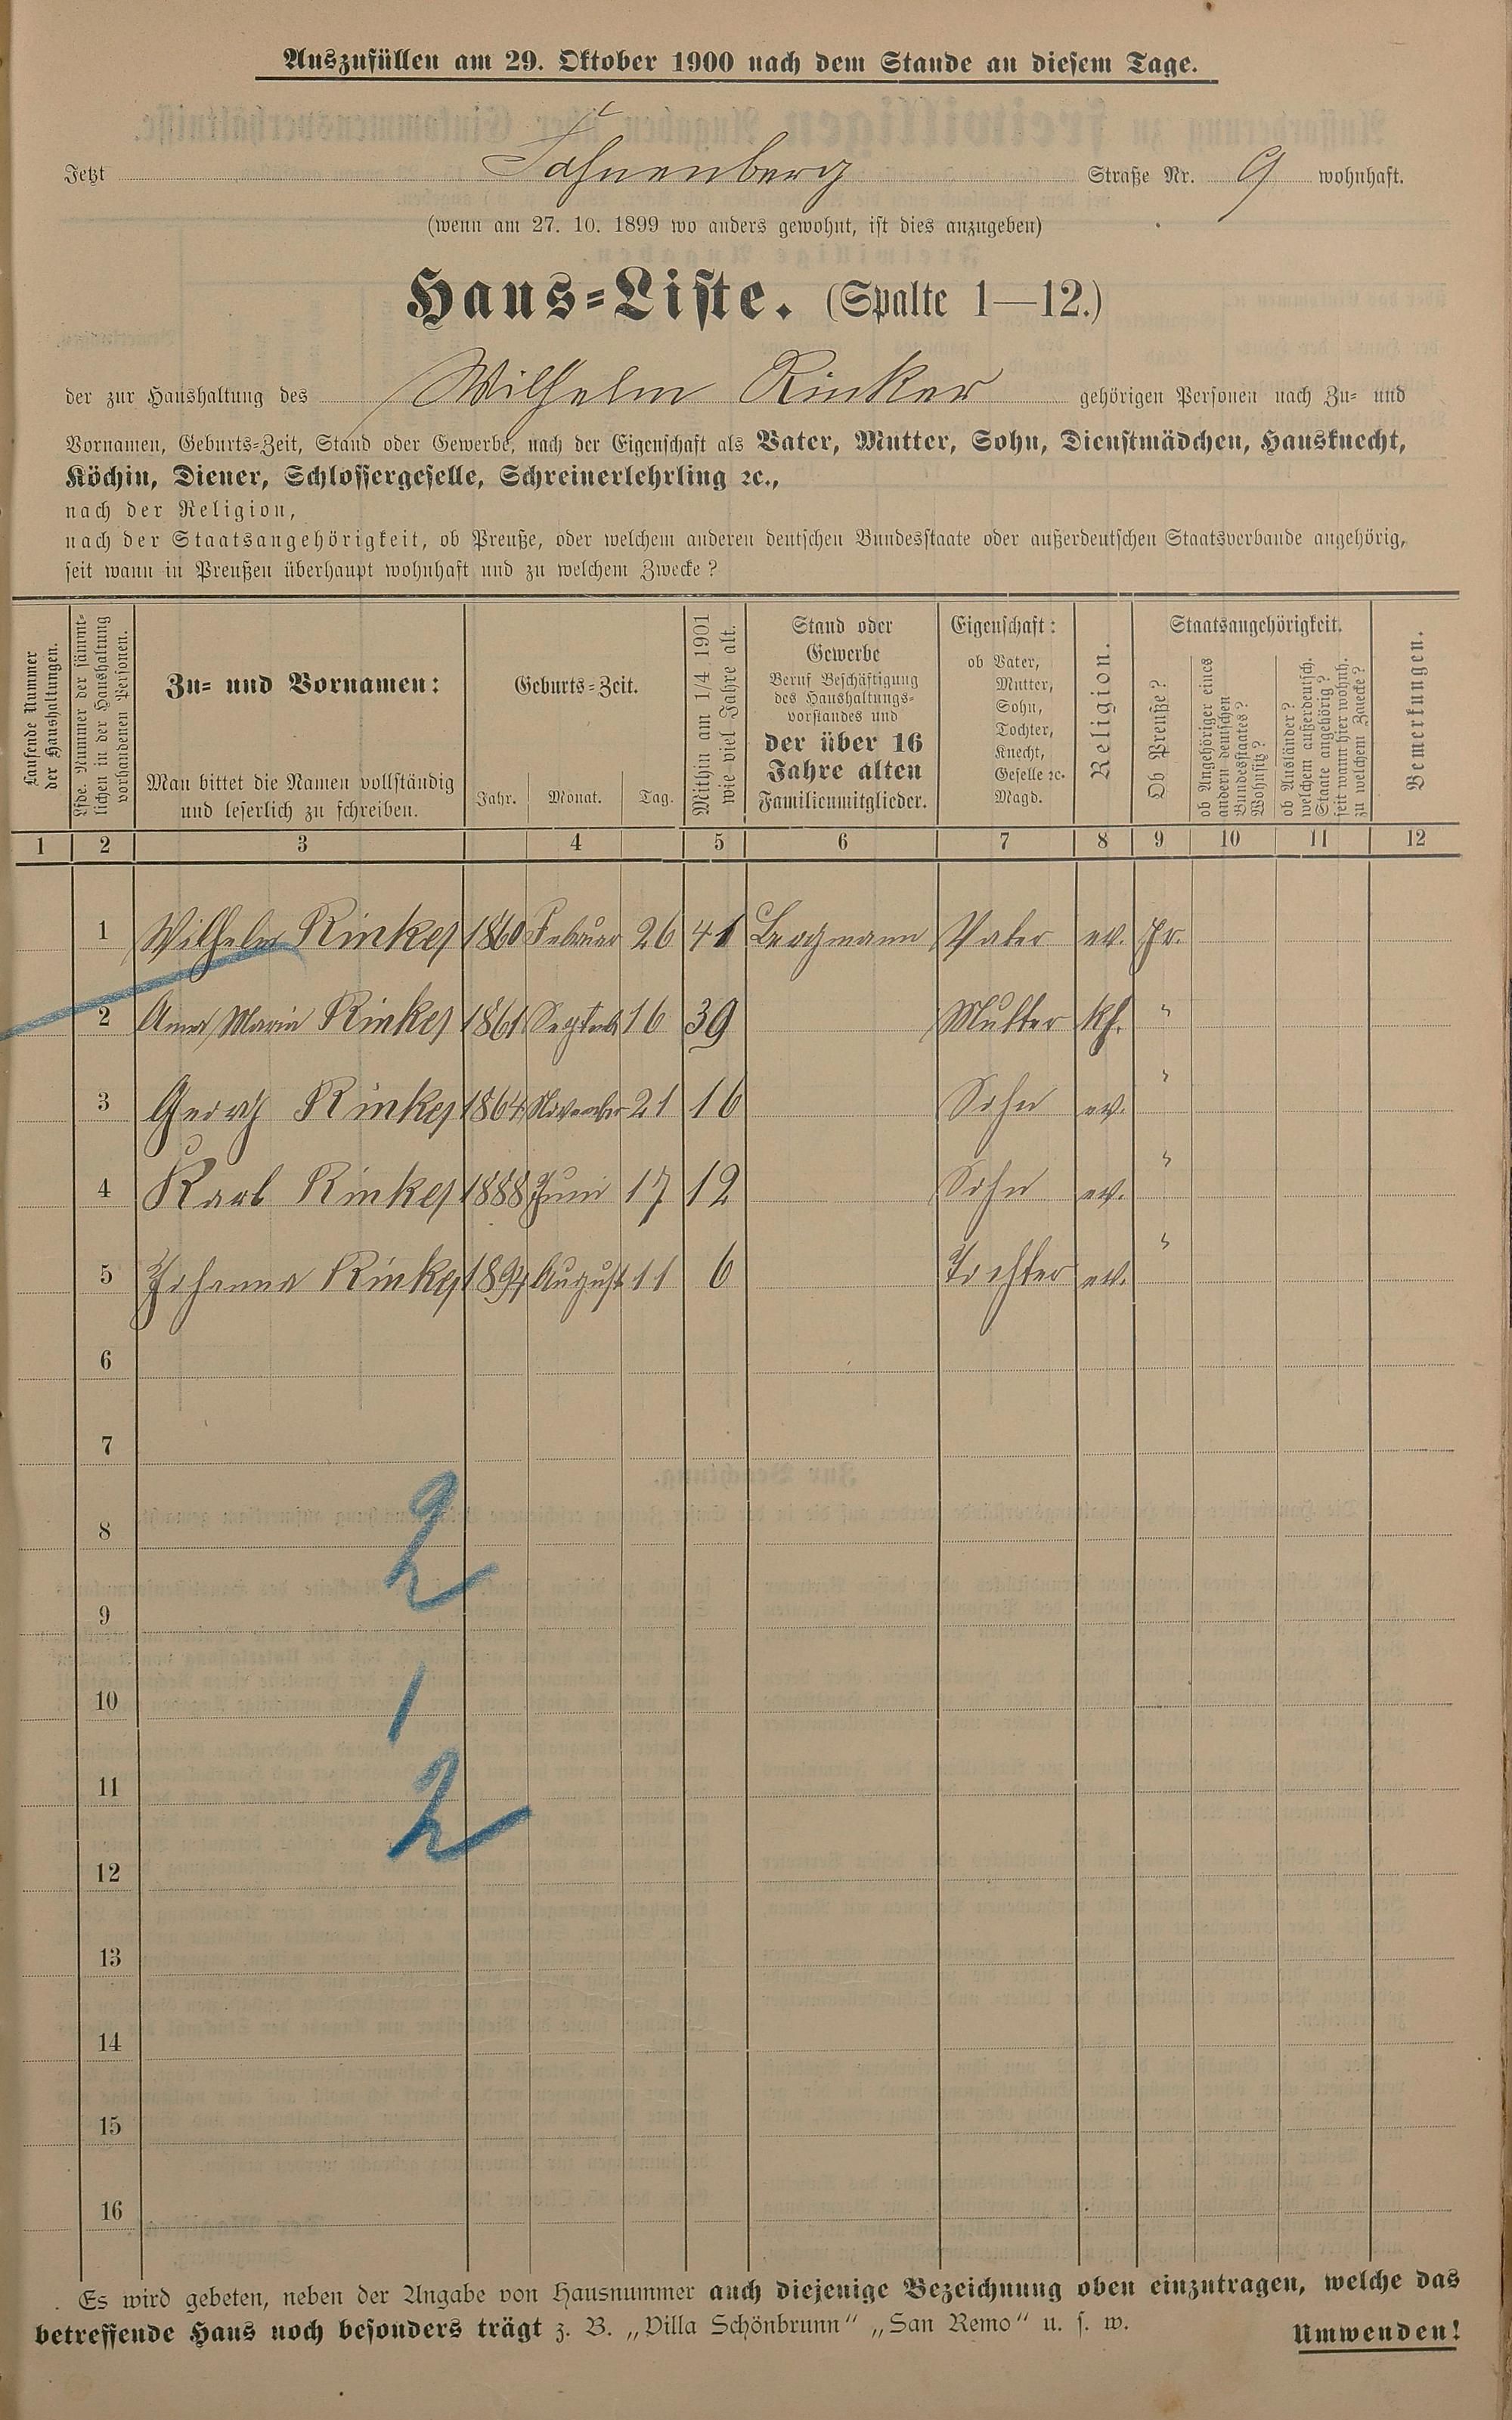 Auszufüllen am 29. Oktober 1900 nach dem Stande an diesem Tage.
Jetzt Fahnenberg Straße Nr. 9 wohnhaft.
(wenn am 27. 10. 1899 wo anders gewohnt, ist dies anzugeben)
Haus-Liste. (Spalte 1—12.)
der zur Haushaltung des Wilhelm Rinker gehörigen Personen nach Zu- und
Vornamen, Geburts-Zeit, Stand oder Gewerbe, nach der Eigenschaft als Vater, Mutter, Sohn, Dienstmädchen, Hausknecht,
Köchin, Diener, Schlossergeselle, Schreinerlehrling ꝛc.,
nach der Religion,
nach der Staatsangehörigkeit, ob Preuße, oder welchem anderen deutschen Bundesstaate oder außerdeutschen Staatsverbande angehörig,
seit wann in Preußen überhaupt wohnhaft und zu welchem Zwecke?
Laufende Nummer
der Haushaltungen.
Lfde. Nummer der sämmt-
lichen in der Haushaltung
vorhandenen Personen.
Zu- und Vornamen:
Man bittet die Namen vollständig
und leserlich zu schreiben.
Geburts-Zeit.
Jahr. Monat. Tag.
Mithin am 1/4 1901
wie viel Jahre alt.
Stand oder
Gewerbe
Beruf Beschäftigung
des Haushaltungs-
vorstandes und
der über 16
Jahre alten
Familienmitglieder.
Eigenschaft:
ob Vater,
Mutter,
Sohn,
Tochter,
Knecht,
Geselle ꝛc.
Magd.
Religion.
Staatsangehörigkeit.
Ob Preuße?
ob Angehöriger eines
andern deutschen
Bundesstaates?
Wohnsitz?
ob Ausländer?
welchem außerdeutsch.
Staate angehörig?
seit wann hier wohnh.
zu welchem Zwecke?
Bemerkungen.
1 2 3 4 5 6 7 8 9 10 11 12
1 Wilhelm Rinker 1860 Februar 26 41 Bergmann Vater ev. Pr.
2 Anna Maria Rinker 1861 Septemb 16 39 Mutter kt. "
3 Georg Rinker 1864 November 21 16 Sohn ev. "
4 Karl Rinker 1888 Juni 17 12 Sohn ev. "
5 Johanna Rinker 1894 August 11 6 Tochter ev. "
6
7
8
2
9
10
1
11
2
12
13
14
15
16
Es wird gebeten, neben der Angabe von Hausnummer auch diejenige Bezeichnung oben einzutragen, welche das
betreffende Haus noch besonders trägt z. B. „Villa Schönbrunn“ „San Remo“ u. s. w.
Umwenden!